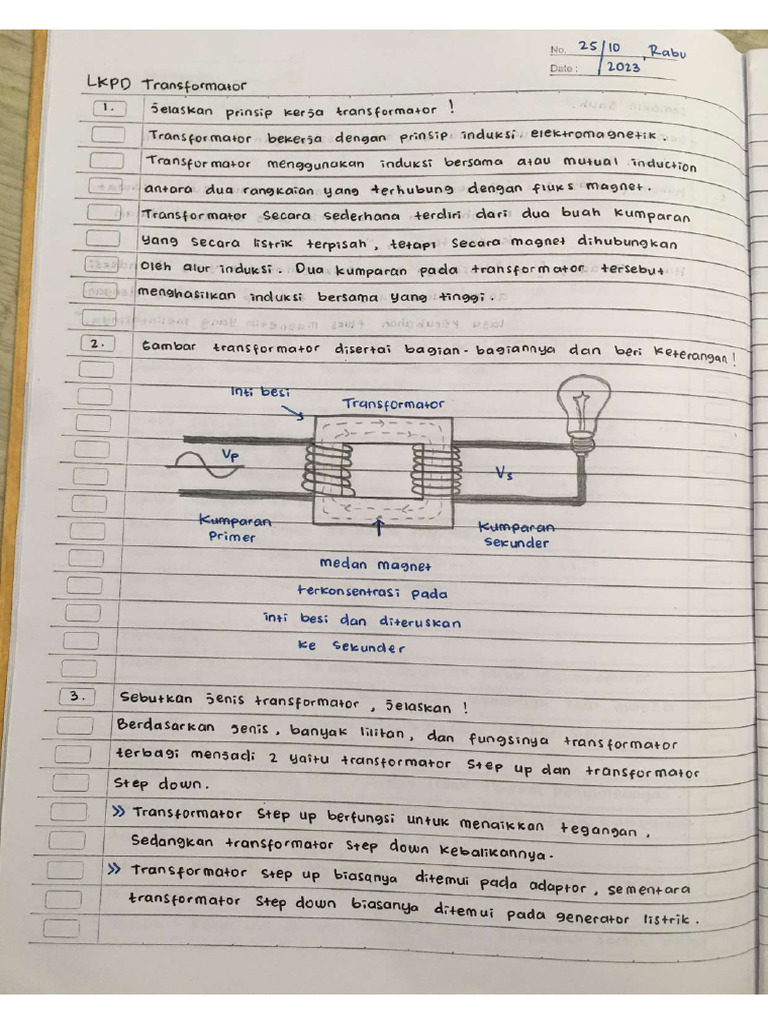 No. 25/10 Rabu
Date : / 2023,
LKPD Transformator
1. Jelaskan prinsip kerja transformator !
Transformator bekerja dengan prinsip induksi elektromagnetik.
Transformator menggunakan induksi bersama atau mutual induction
antara dua rangkaian yang terhubung dengan fluks magnet.
Transformator secara sederhana terdiri dari dua buah kumparan
yang secara listrik terpisah, tetapi secara magnet dihubungkan
oleh alur induksi. Dua kumparan pada transformator tersebut
menghasilkan induksi bersama yang tinggi.
2. Gambar transformator disertai bagian-bagiannya dan beri keterangan!
Inti besi
Transformator
Vp
Vs
Kumparan
Primer
Kumparan
Sekunder
medan magnet
terkonsentrasi pada
inti besi dan diteruskan
ke sekunder
3. Sebutkan jenis transformator, jelaskan !
Berdasarkan jenis, banyak lilitan, dan fungsinya transformator
terbagi menjadi 2 yaitu transformator step up dan transformator
step down.
» Transformator step up berfungsi untuk menaikkan tegangan,
sedangkan transformator step down kebalikannya.
» Transformator step up biasanya ditemui pada adaptor, sementara
transformator step down biasanya ditemui pada generator listrik.